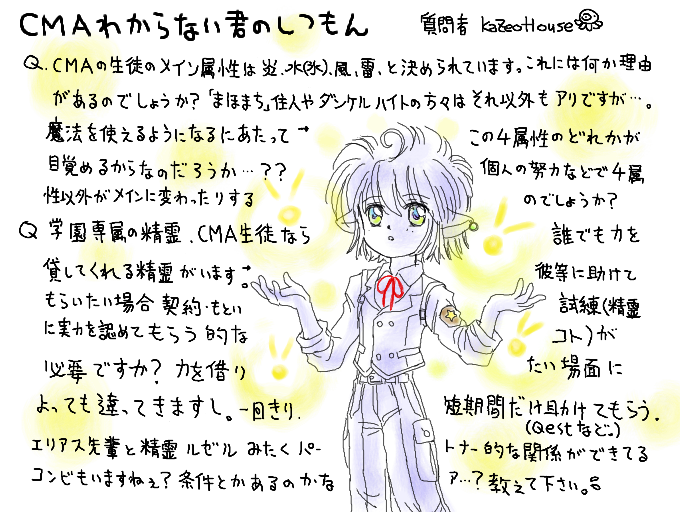 CMAわからない君のしつもん 質問者 KazeoHouse
Q. CMAの生徒のメイン属性は炎、水(氷)、風、雷、と決められています。これには何か理由
があるのでしょうか?「まほまち」住人やダンケルハイトの方々はそれ以外もアリですが…。
魔法を使えるようになるにあたって→ この4属性のどれかが
目覚めるからなのだろうか…?? 個人の努力などで4属
性以外がメインに変わったりする のでしょうか?
Q 学園専属の精霊、CMA生徒なら 誰でも力を
貸してくれる精霊がいます。→ 彼等に助けて
もらいたい場合 契約・もとい 試練(精霊
に実力を認めてもらう的な コト)が
必要ですか? 力を借り たい場面に
よっても違ってきますし。一回きり、 短期間だけ助けてもらう、
(Qestなど。)
エリアス先輩と精霊ルゼルみたくパー トナー的な関係ができてる
コンビもいますねぇ?条件とかあるのかな ァ…?教えて下さい。